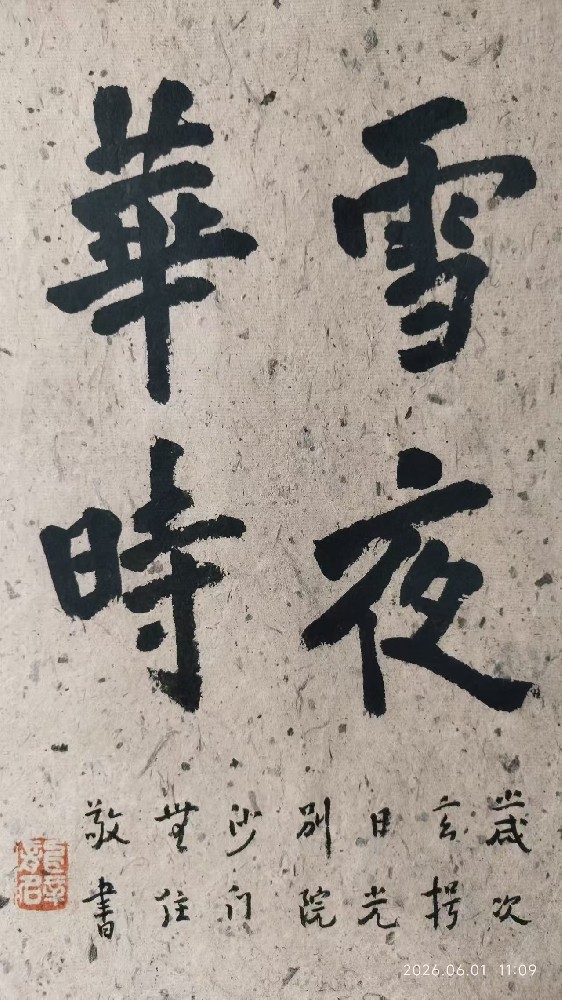 雪夜
華時
歲次
玄揭
日光
別院
沙门
無住
敬書
2026.06.01 11:09